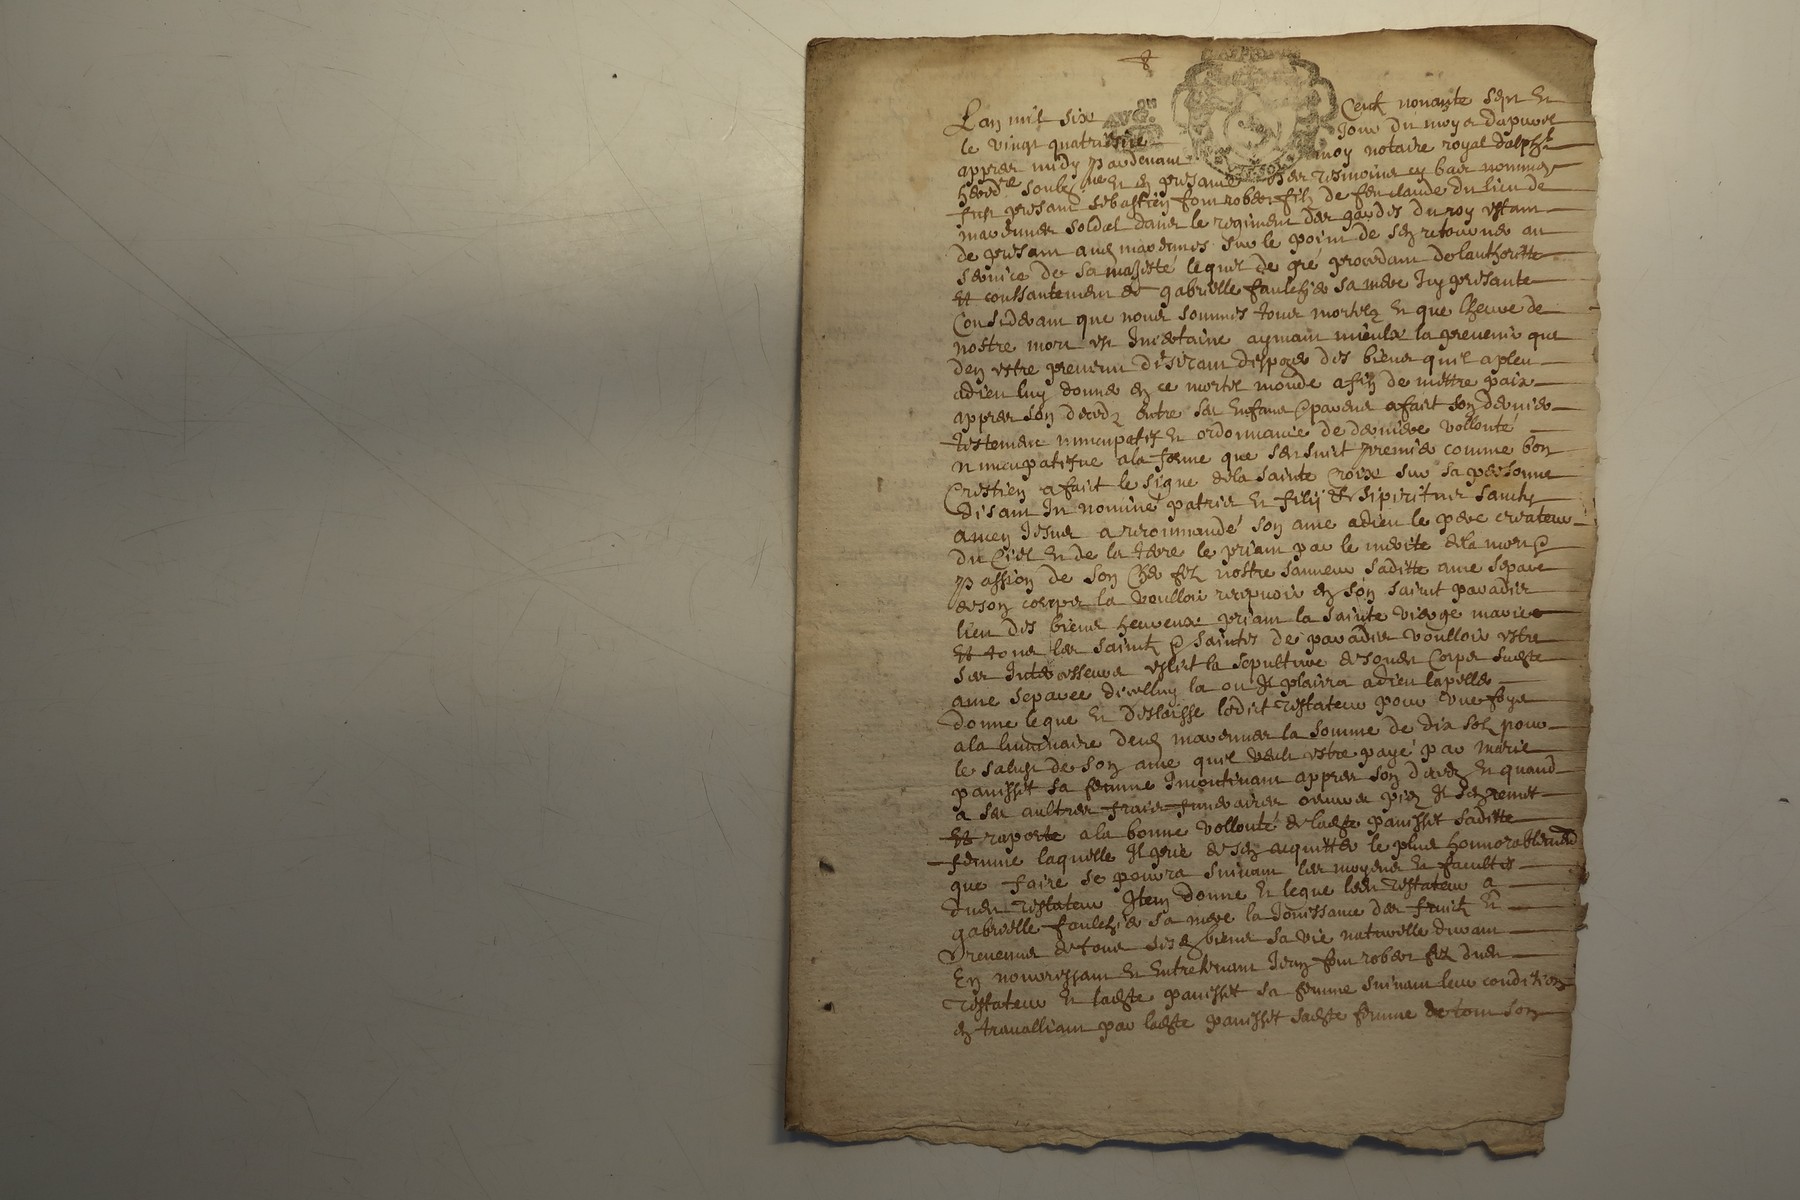 Lan mil six Cent nonante sept Et
le vingt quatriesme Jour du moys dapvril
appres midy pardevant moy notaire royal dalph.l
hered.re soubz.ne et en presance des tesmoins cy bas nommes
fust presant sebastien fom robert filz de feu claude du lieu de
soldat dans le regiment des gardes du roy estant
de presant aud. sur le point de sen retourner au
service de sa majesté lequel de gré procedant de lauthoritte
Et conssantement de gabrielle sa mere Icy presante
Considerant que nous sommes tous mortelz Et que lheure de
nostre mort est Incertaine aymant mieulx la prevenir que
den estre prevenu desirant disposer des biens quil a pleu
a dieu luy donner en ce mortel monde afin de mettre paix
appres son deces entre ses Enfans & parens a fait son dernier
testement nuncupatif Et ordonnance de derniere vollonté
nuncupatifve a la forme que sensuit premier comme bon
Crestien a fait le signe de la sainte Croix sur sa personne
disant In nomine patris Et filij Et spiritus sancty
amen Jesus a recommandé son ame a dieu le pere createur
du Ciel Et de la terre le priant par le merite de la mort &
passion de son Cher filz nostre sauveur saditte ame separe
de son corps la voulloir recepvoir en son saint paradis
lieu des biens heureux priant la sainte vierge marie
Et tous les saintz & saintes de paradis voulloir estre
ses Intercesseurs eslit la sepulture de sond. Corps sadte
ame separee dicelluy la ou Il plaira a dieu lapeller
donne legue Et deslaisse ledit testateur pour une foys
a la luminaire dud. la somme de dix solz pour
le salut de son ame quil veult estre payé par marie
panisset sa femme Incontinant appres son deces Et quand
a ses aultres frais funeraires œuvres pies Il sen remet
Et raporte a la bonne vollonté de ladte panisset saditte
femme laquelle Il prie de sen acquitter le plus honnorablement
que faire se pourra suivant les moyens Et facultes
dud. testateur Item donne Et legue led. testateur a
gabrielle sa mere la Jouissance des fruitz Et
revenus de tous sesd. biens sa vie naturelle durant
En nourrissant Et Entretenant Jean fom robert filz dud.
testateur Et ladte panisset sa femme suivant leur condition
en travalliant par ladte panisset sadte femme de tout son